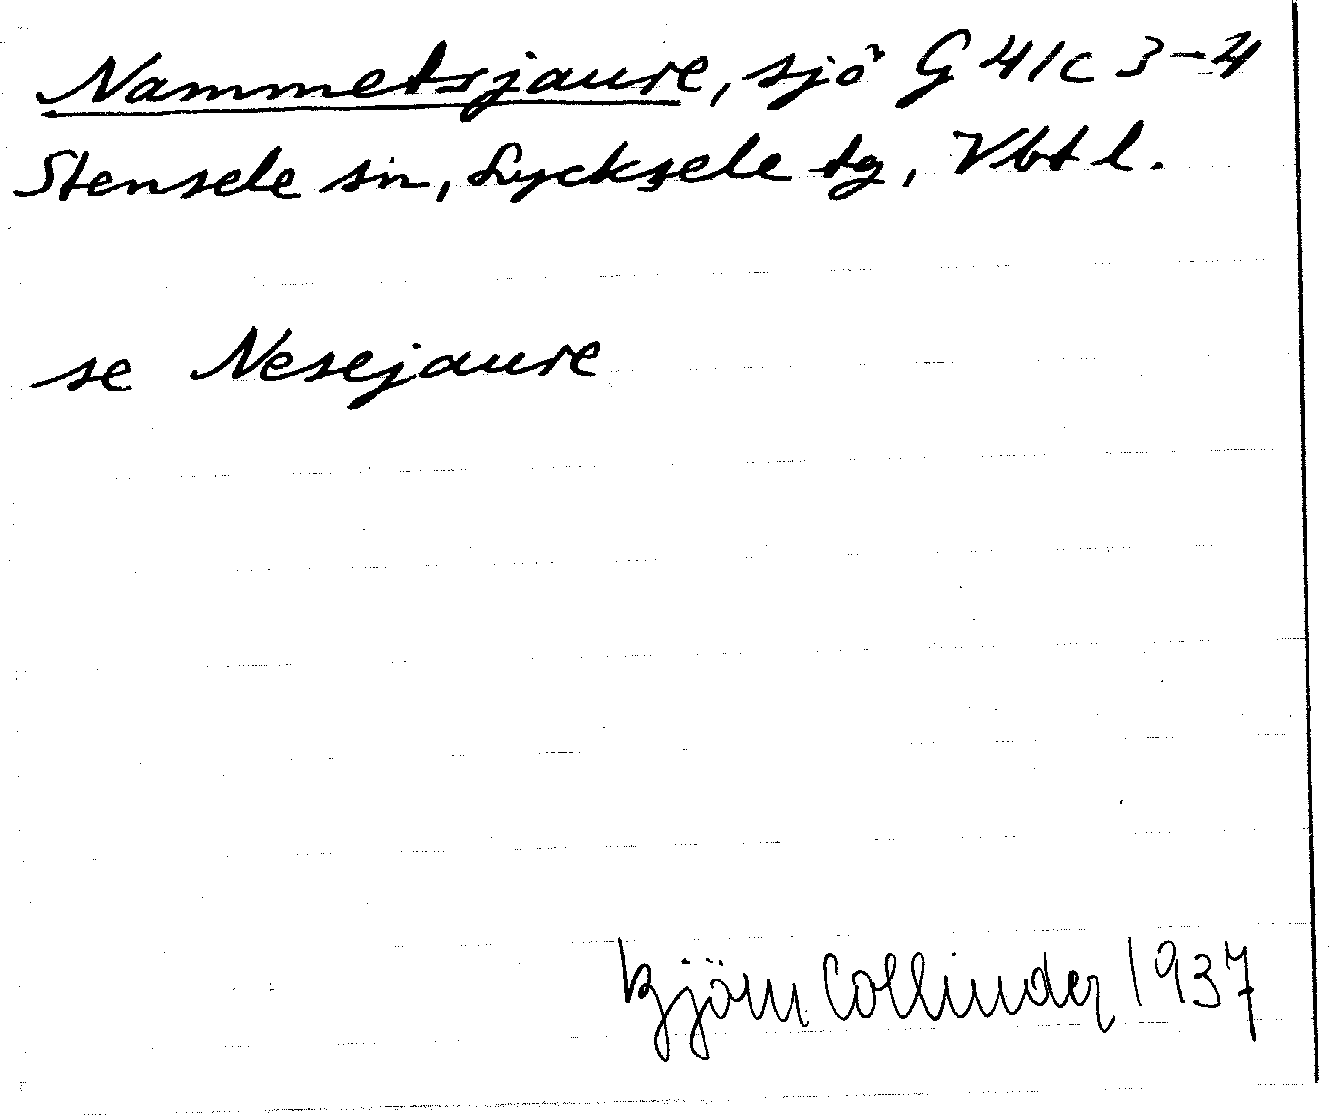 Nammetsjaure, sjö G 41c 3-4
Stensele sn, Lycksele tg, Vbtl.
se Nesejaure
Björn Collinder 1937